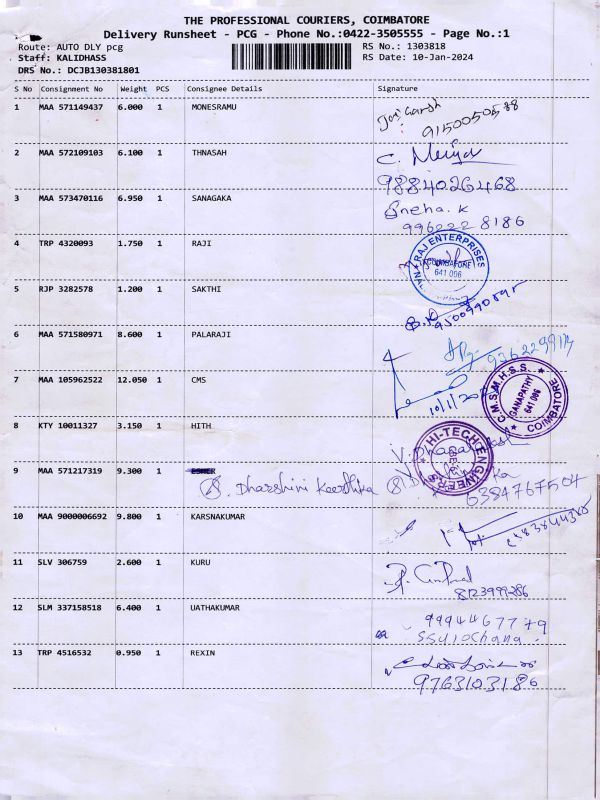 THE PROFESSIONAL COURIERS, COIMBATORE
Delivery Runsheet - PCG - Phone No.:0422-3505555 - Page No.:1
Route: AUTO DLY pcg RS No.: 1303818
Staff: KALIDHASS RS Date: 10-Jan-2024
DRS No.: DCJB130381801
S No Consignment No Weight PCS Consignee Details Signature
1 MAA 571149437 6.000 1 MONESRAMU
9150050588
2 MAA 572109103 6.100 1 THNASAH C.
9884026468
3 MAA 573470116 6.950 1 SANAGAKA Sneha.K
996222 8186
4 TRP 4320093 1.750 1 RAJI RAJ ENTERPRISES
641 006
5 RJP 3282578 1.200 1 SAKTHI
6 MAA 571580971 8.600 1 PALARAJI
7 MAA 105962522 12.050 1 CMS C.M.S.M.H.S.S. GANAPATHY 641 006 COIMBATORE
8 KTY 10011327 3.150 1 HITH HI-TECH ENGINEERS
9 MAA 571217319 9.300 1
Dharshini Keerthika
6384767504
10 MAA 9000006692 9.800 1 KARSNAKUMAR
11 SLV 306759 2.600 1 KURU
8123999286
12 SLM 337158518 6.400 1 UATHAKUMAR 9994467779
SSulochana
13 TRP 4516532 0.950 1 REXIN
9763103186